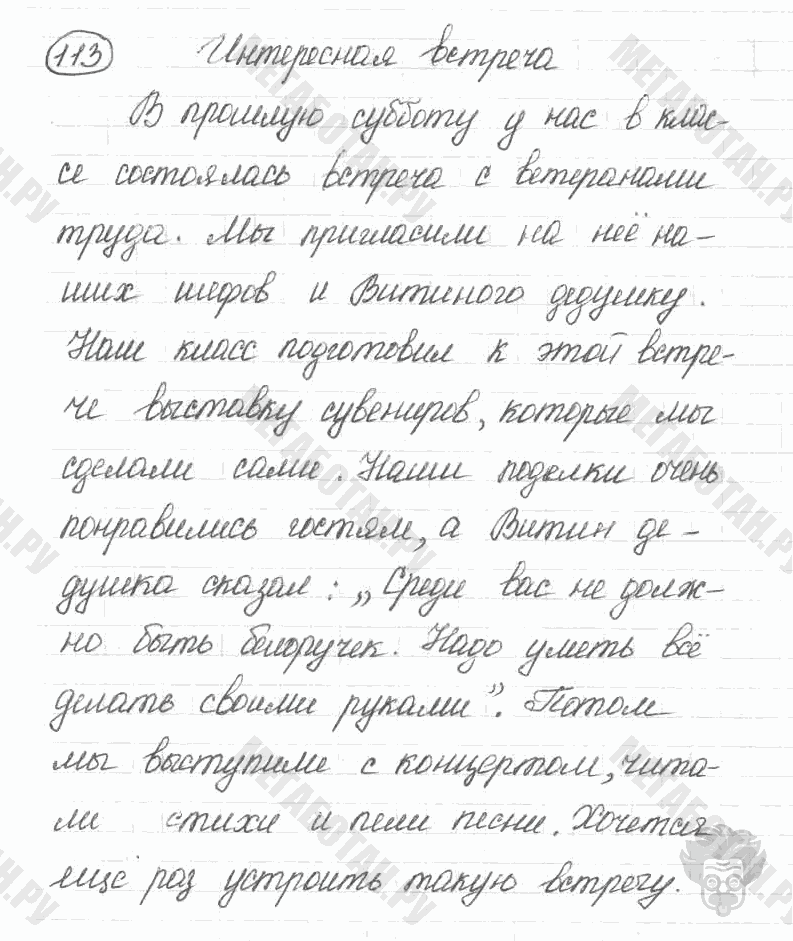 113 Интересная встреча
В прошлую субботу у нас в клас-
се состоялась встреча с ветеранами
труда. Мы пригласили на неё на-
ших шефов и Витиного дедушку.
Наш класс подготовил к этой встре-
че выставку сувениров, которые мы
сделали сами. Наши поделки очень
понравились гостям, а Витин де-
душка сказал: „Среди вас не долж-
но быть белоручек. Надо уметь всё
делать своими руками”. Потом
мы выступили с концертом, чита-
ли стихи и пели песни. Хочется
ещё раз устроить такую встречу.
МЕГАБОТАН.РУ